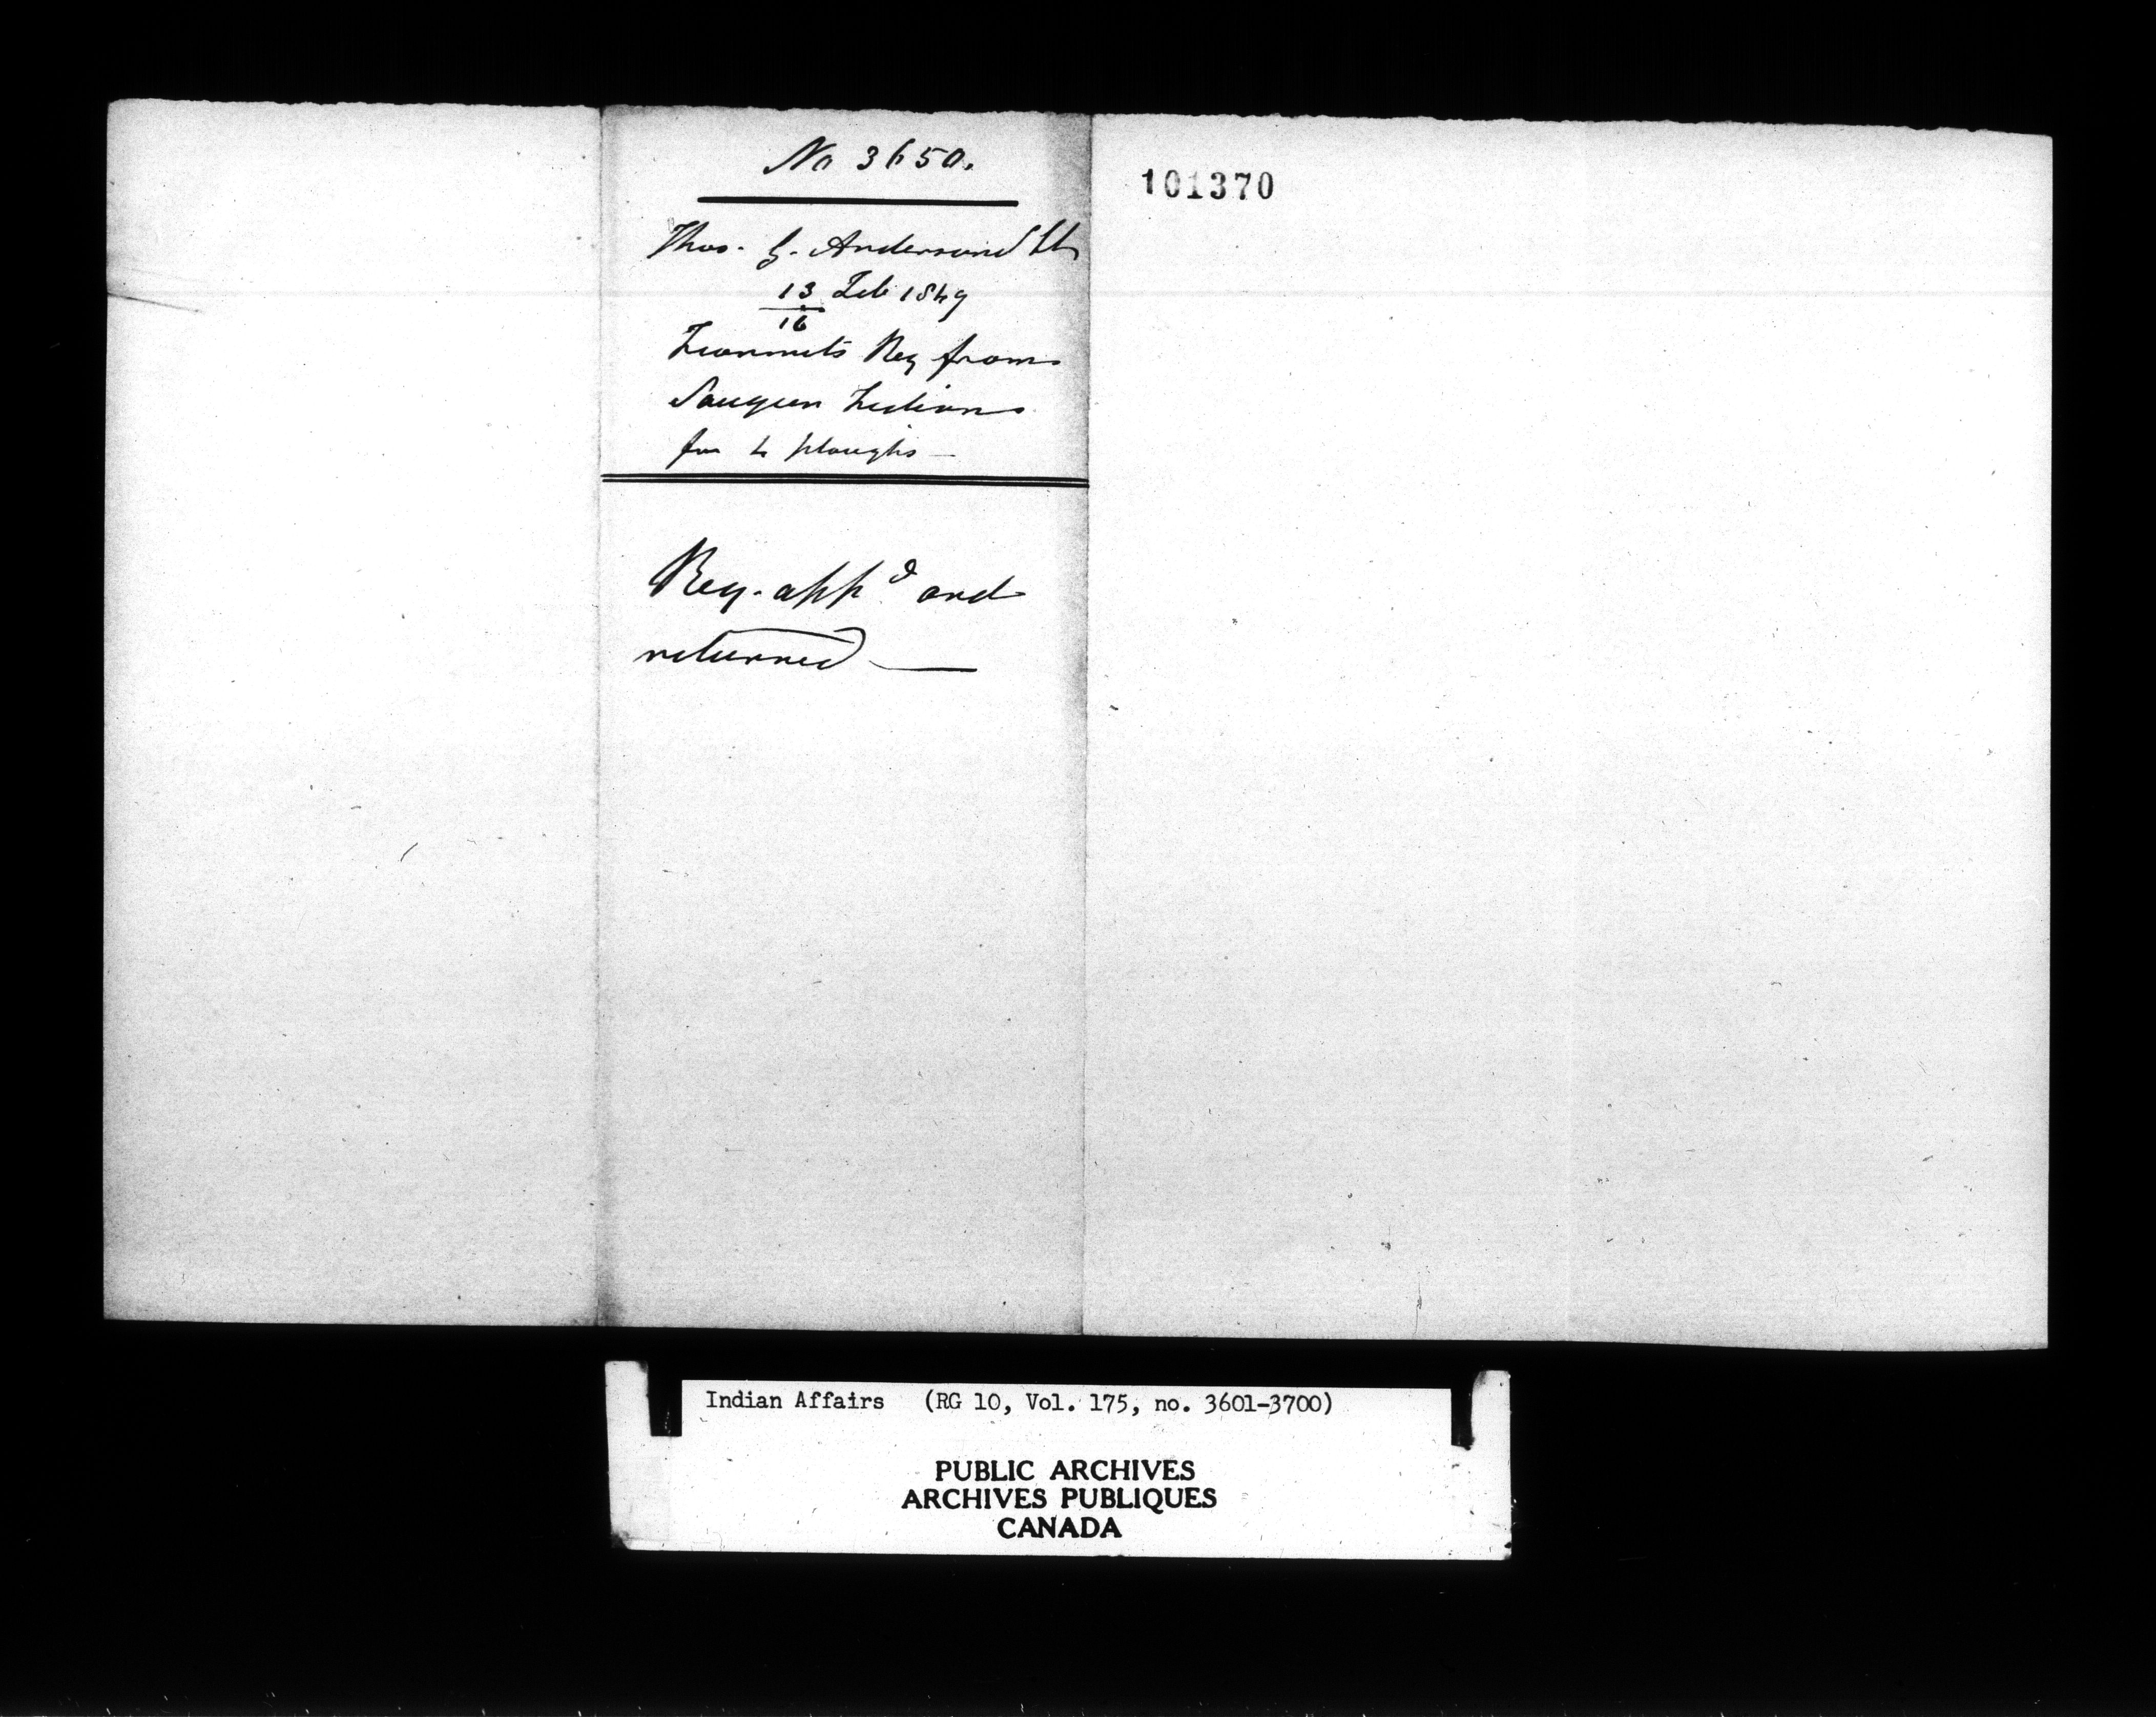 No 3650.
101370
Thos. G. Anderson
13 Feb 1849
16
Transmits Req from
Saugeen Indians
for 4 ploughs —
Req. appd and
returned —
Indian Affairs (RG 10, Vol. 175, no. 3601-3700)
PUBLIC ARCHIVES
ARCHIVES PUBLIQUES
CANADA